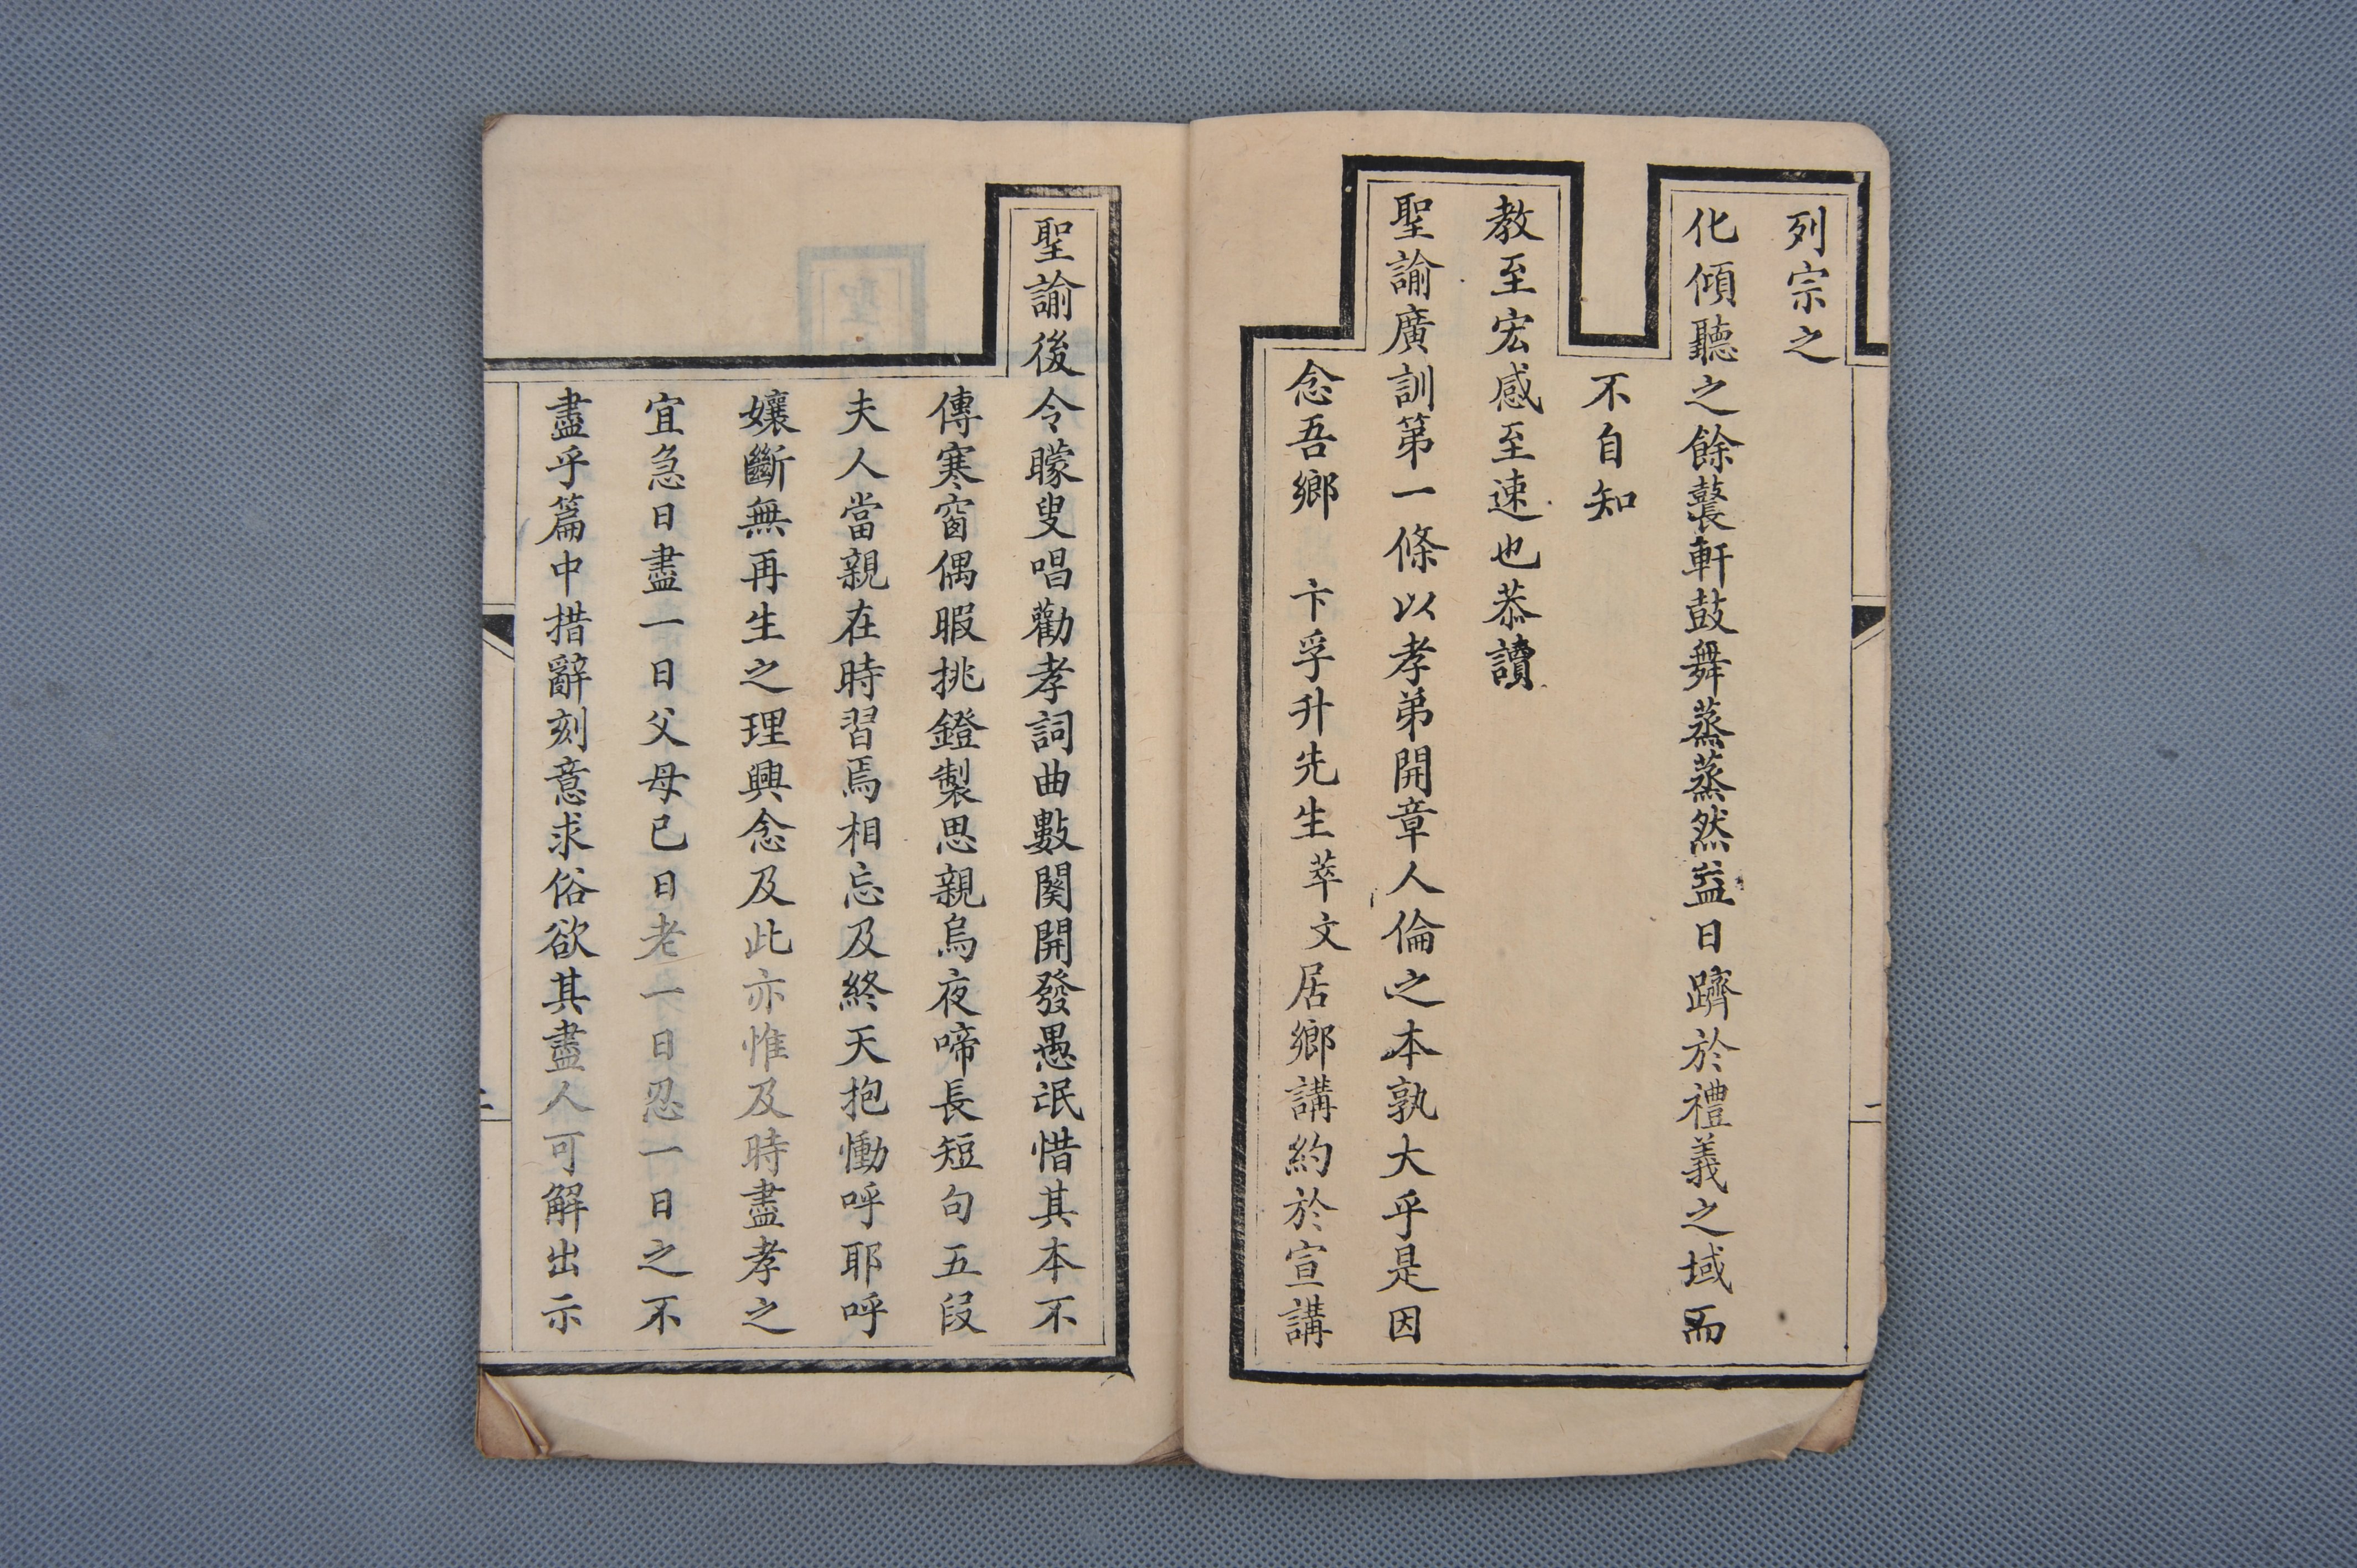 列宗之
化傾聽之餘鼚軒鼓舞蒸蒸然益日躋於禮義之域而
不自知
教至宏感至速也恭讀
聖諭廣訓第一條以孝弟開章人倫之本孰大乎是因
念吾鄉　卞孚升先生萃文居鄉講約於宣講
聖諭後令矇叟唱勸孝詞曲數闋開發愚氓惜其本不
傳寒窗偶暇挑鐙製思親烏夜啼長短句五段
夫人當親在時習焉相忘及終天抱慟呼耶呼
孃斷無再生之理興念及此亦惟及時盡孝之
宜急日盡一日父母已日老一日忍一日之不
盡乎篇中措辭刻意求俗欲其盡人可解出示